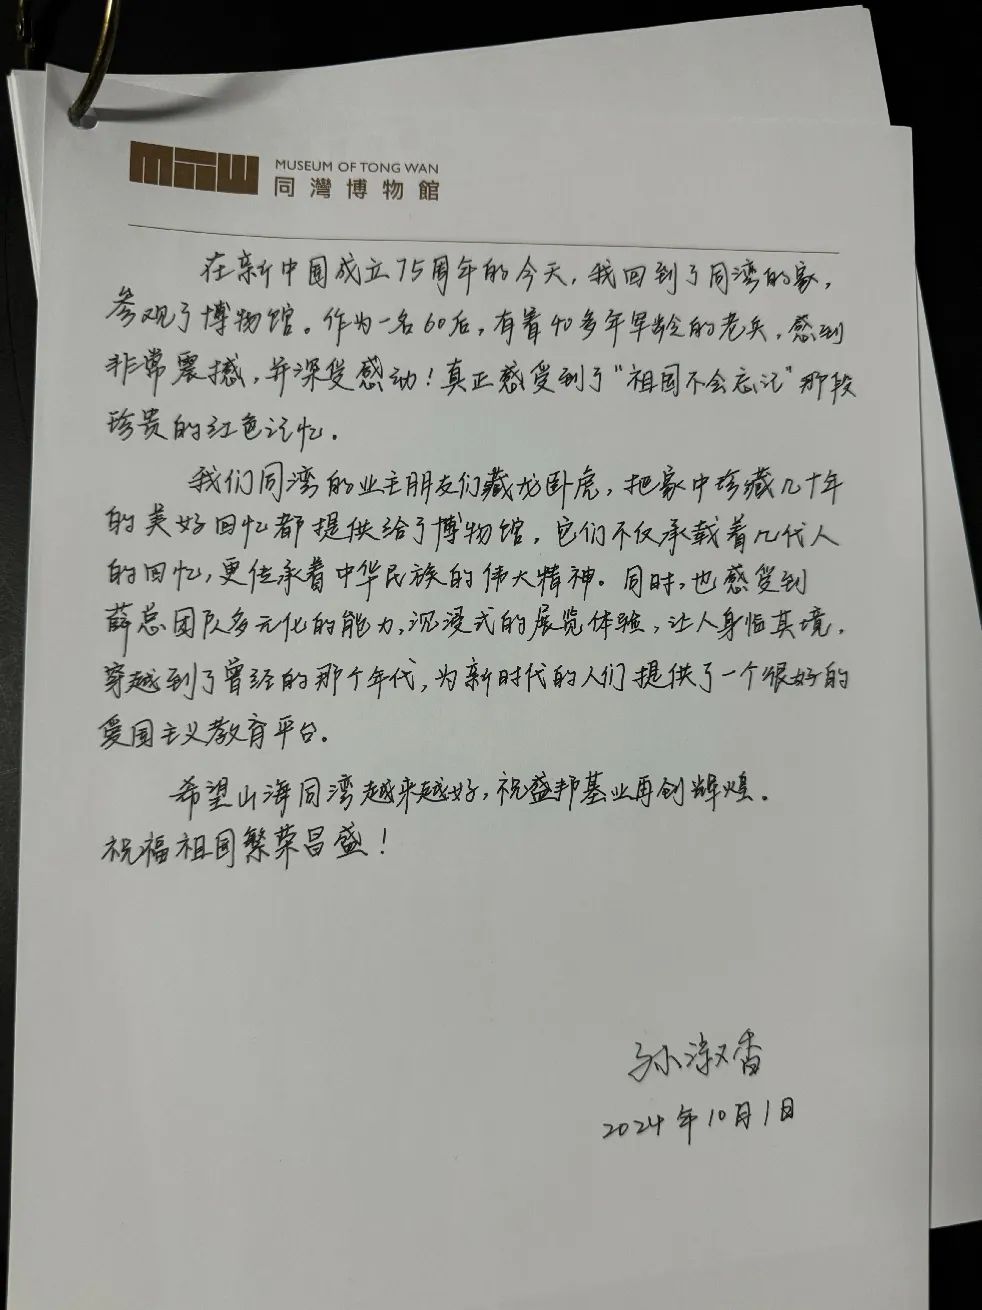 MUSEUM OF TONG WAN
同灣博物館
在新中国成立75周年的今天，我回到了同湾的家，
参观了博物馆。作为一名60后，有着40多年军龄的老兵，感到
非常震撼，并深受感动！真正感受到了“祖国不会忘记”那段
珍贵的红色记忆.
我们同湾的业主朋友们藏龙卧虎，把家中珍藏几十年
的美好回忆都提供给了博物馆，它们不仅承载着几代人
的回忆，更传承着中华民族的伟大精神。同时，也感受到
薛总团队多元化的能力，沉浸式的展览体验，让人身临其境，
穿越到了曾经的那个年代，为新时代的人们提供了一个很好的
爱国主义教育平台。
希望山海同湾越来越好，祝盛邦基业再创辉煌.
祝福祖国繁荣昌盛！
孙淑香
2024年10月1日